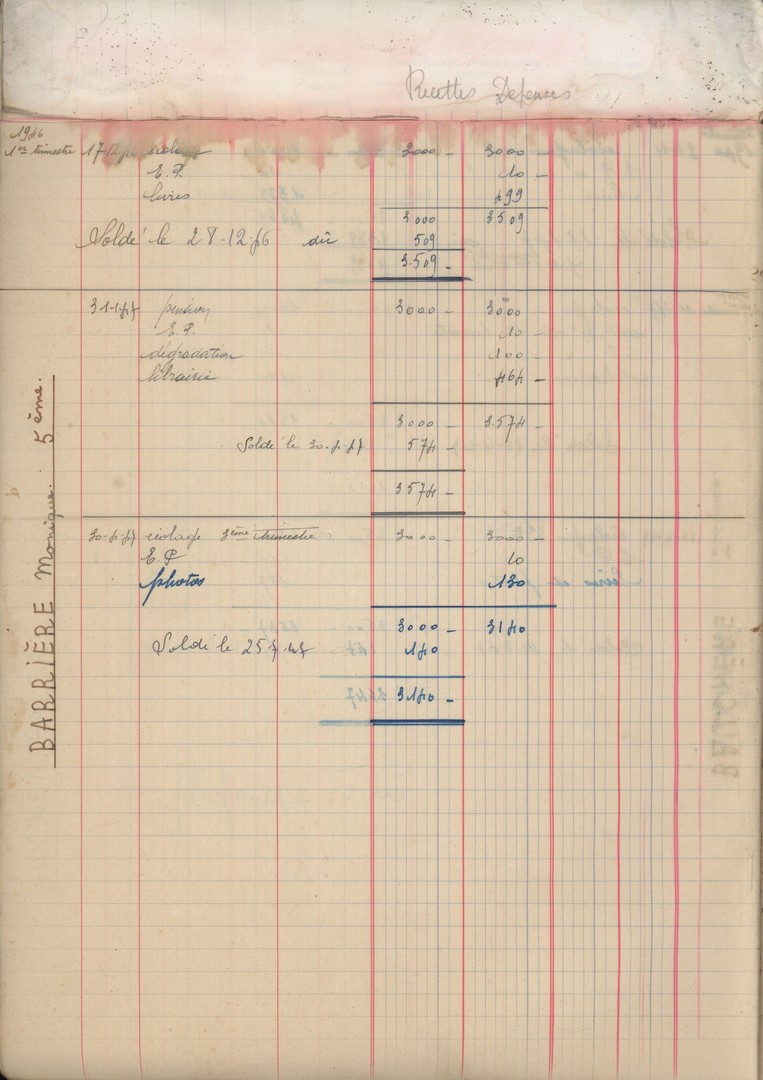 Recettes Dépenses
1946
1er trimestre 17 écolage 3000 - 3000 -
E.P. 10 -
livres 499
3000 3509
Soldé le 28-12-46 dû 509
3.509 -
31-1-47 pension 3000 - 3000
E.P. 10 -
dégradation 100 -
librairie 464 -
3000 - 3.574 -
Soldé le 30-4-47 574 -
3574 -
30-4-47 écolage 3ème trimestre 3000 - 3000 -
E.P 10
photos 130
3000 - 3140
Soldé le 25 7-47 140
3140 -
BARRIÈRE Monique. 5ème.